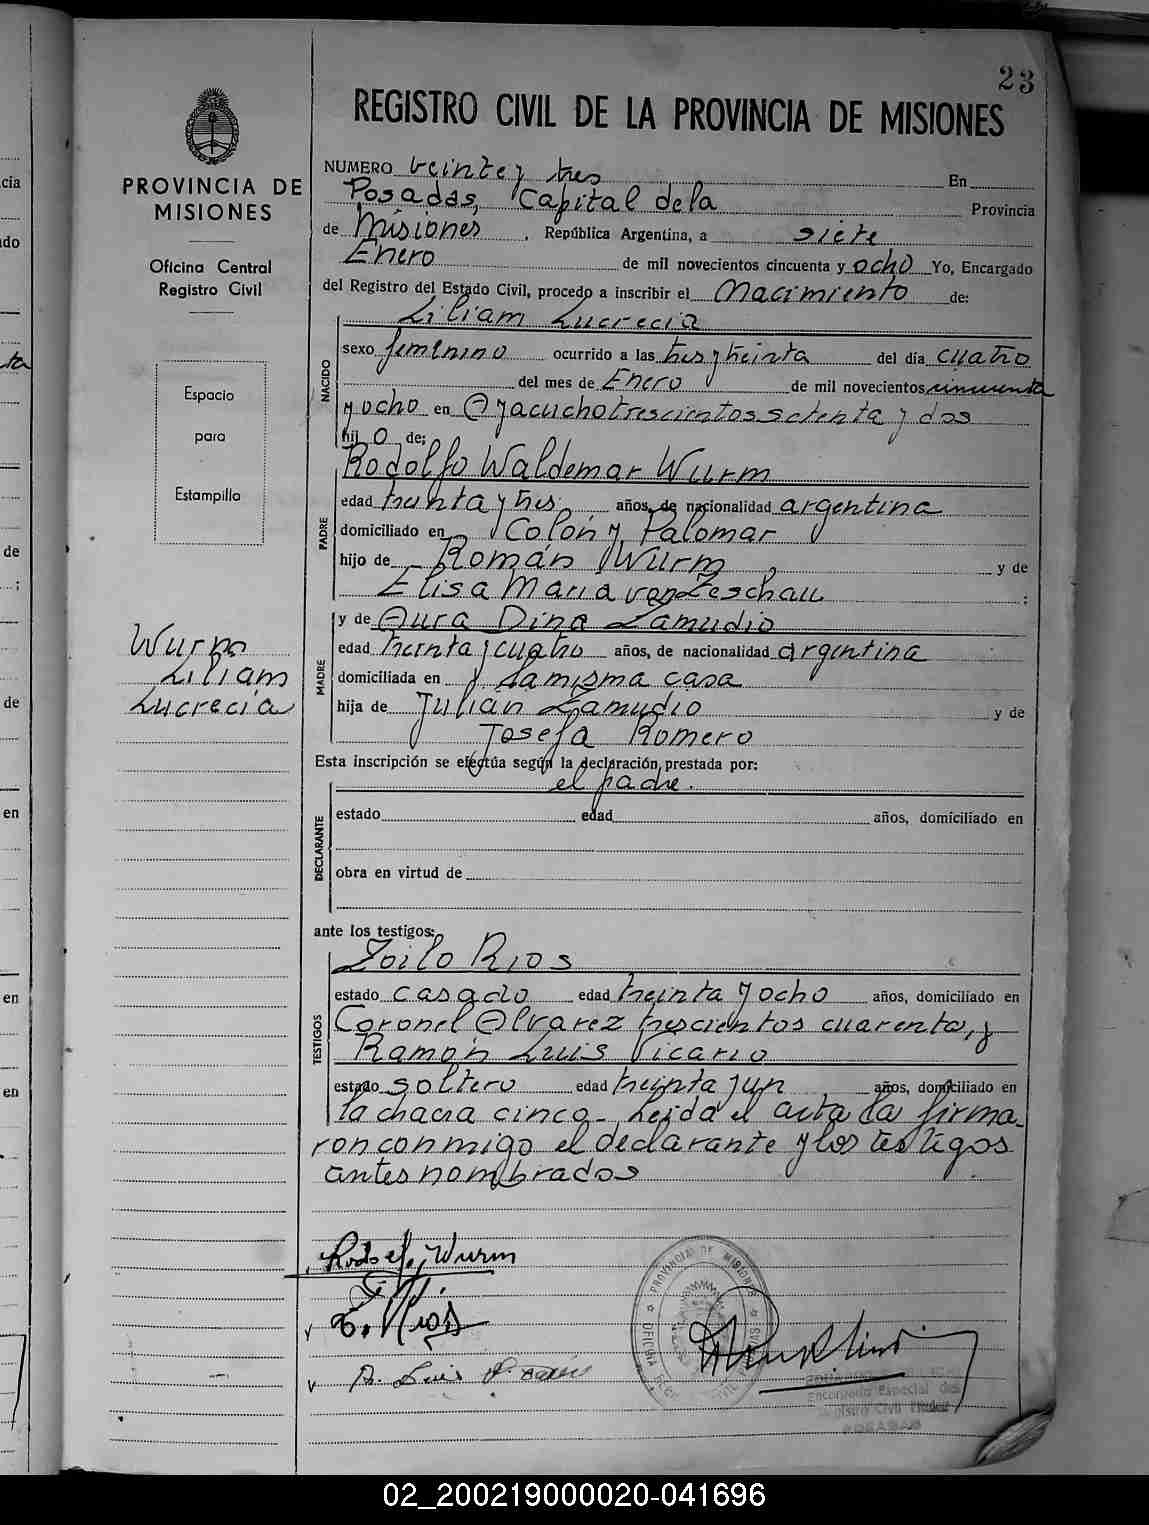 23
REGISTRO CIVIL DE LA PROVINCIA DE MISIONES
PROVINCIA DE
MISIONES
Oficina Central
Registro Civil
Espacio
para
Estampilla
Wurm
Liliam
Lucrecia
NUMERO veinte y tres En
Posadas, Capital de la Provincia
de Misiones, República Argentina, a siete
Enero de mil novecientos cincuenta y ocho Yo, Encargado
del Registro del Estado Civil, procedo a inscribir el Nacimiento de:
NACIDO
Liliam Lucrecia
sexo femenino ocurrido a las tres y treinta del día cuatro
del mes de Enero de mil novecientos cincuenta
y ocho en Ayacucho trescientos setenta y dos
hij o de:
PADRE
Rodolfo Waldemar Wurm
edad treinta y tres años, de nacionalidad argentina
domiciliado en Colón y Palomar
hijo de Román Wurm y de
Elisa Maria von Zeschau ;
MADRE
y de Aura Dina Zamudio
edad treinta y cuatro años, de nacionalidad argentina
domiciliada en la misma casa
hija de Julián Zamudio y de
Josefa Romero
Esta inscripción se efectúa según la declaración prestada por:
el padre.
DECLARANTE
estado edad años, domiciliado en
obra en virtud de
ante los testigos:
TESTIGOS
Zoilo Rios
estado casado edad treinta y ocho años, domiciliado en
Coronel Alvarez trescientos cuarenta, y
Ramón Luis Vicario
estado soltero edad treinta y un años, domiciliado en
la chacra cinco. Leida el acta la firma-
ron conmigo el declarante y los testigos
antes nombrados
Rodolfo Wurm
Z. Rios
R. Luis Vicario
PROVINCIA DE MISIONES
Encargado Especial del
Registro Civil
POSADAS
cia
do
de
;
de
en
en
en
02_200219000020-041696